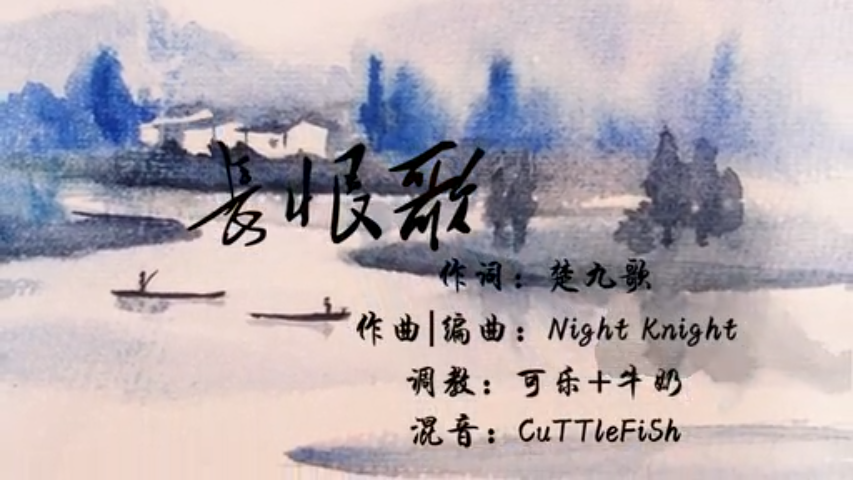 長恨歌
作词：楚九歌
作曲|编曲：Night Knight
调教：可乐+牛奶
混音：CuTTleFiSh